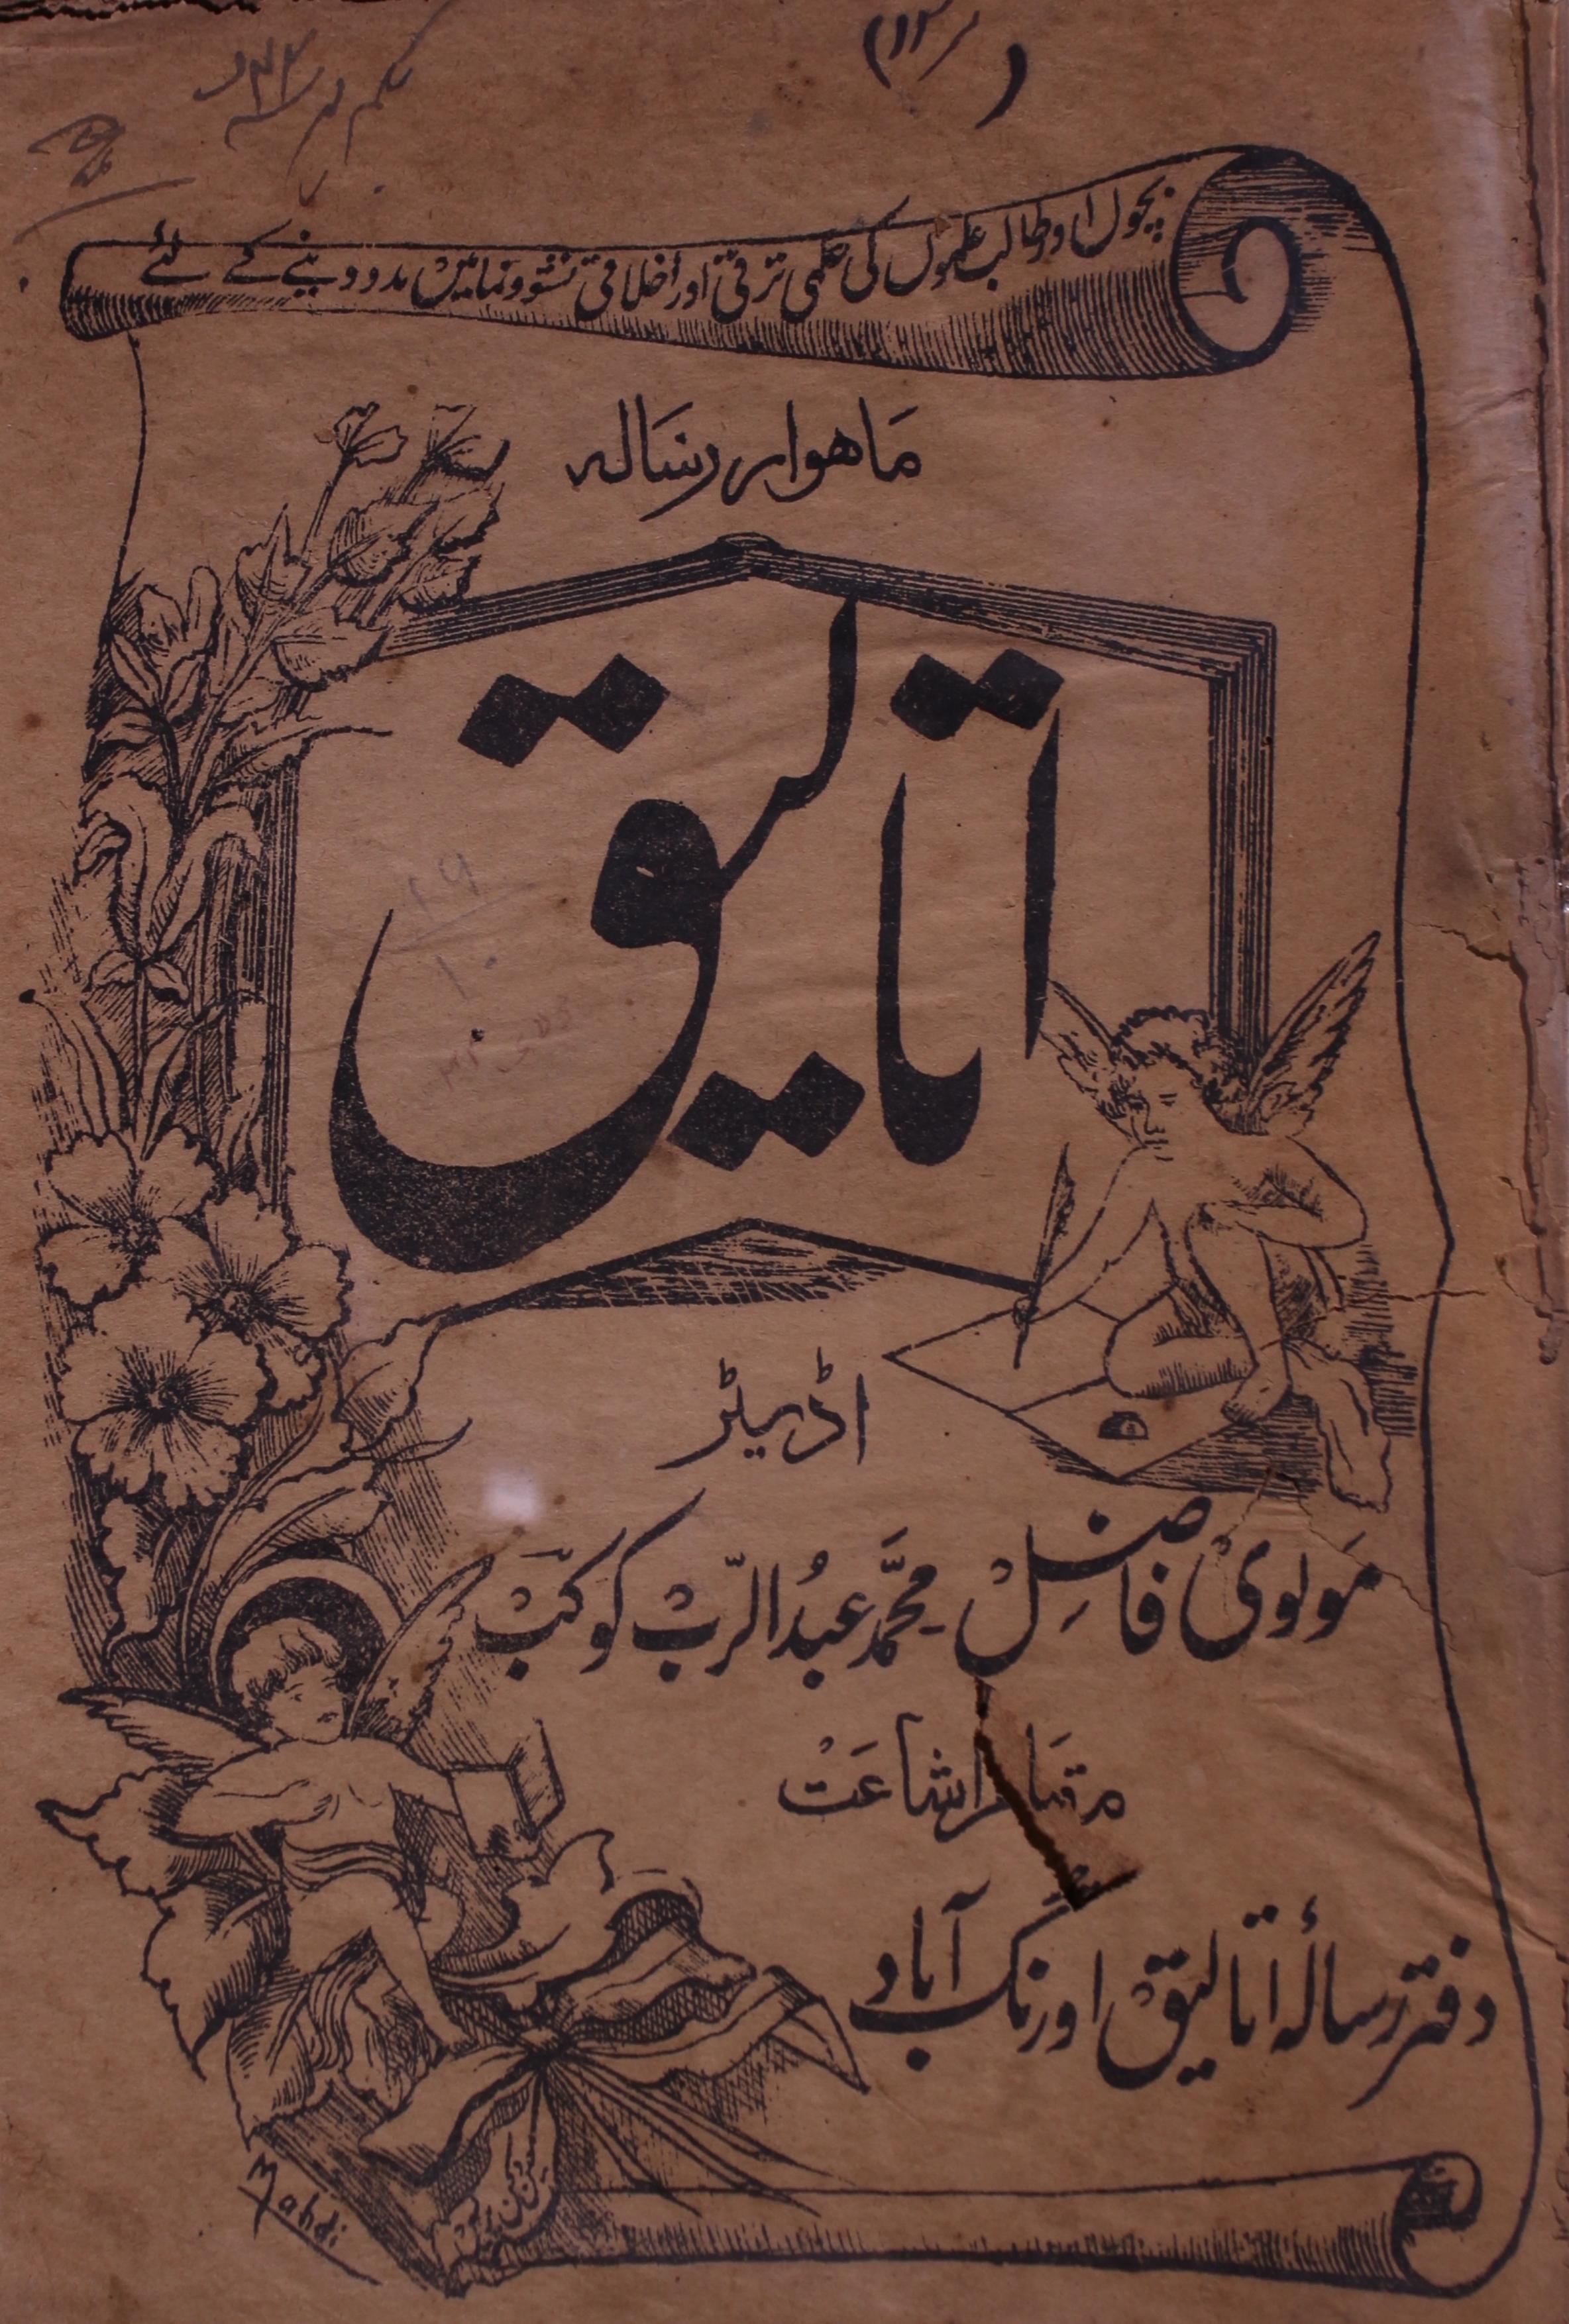 بچوں اور طالب علموں کی علمی ترقی اور اخلاقی نشوونما میں مدد دینے کے لئے
ماھوار رسالہ
اتالیق
اڈیٹر
مولوی فاضل محمد عبدالرب کوکب
مقام اشاعت
دفتر رسالۂ اتالیق اورنگ آباد
Mahdi